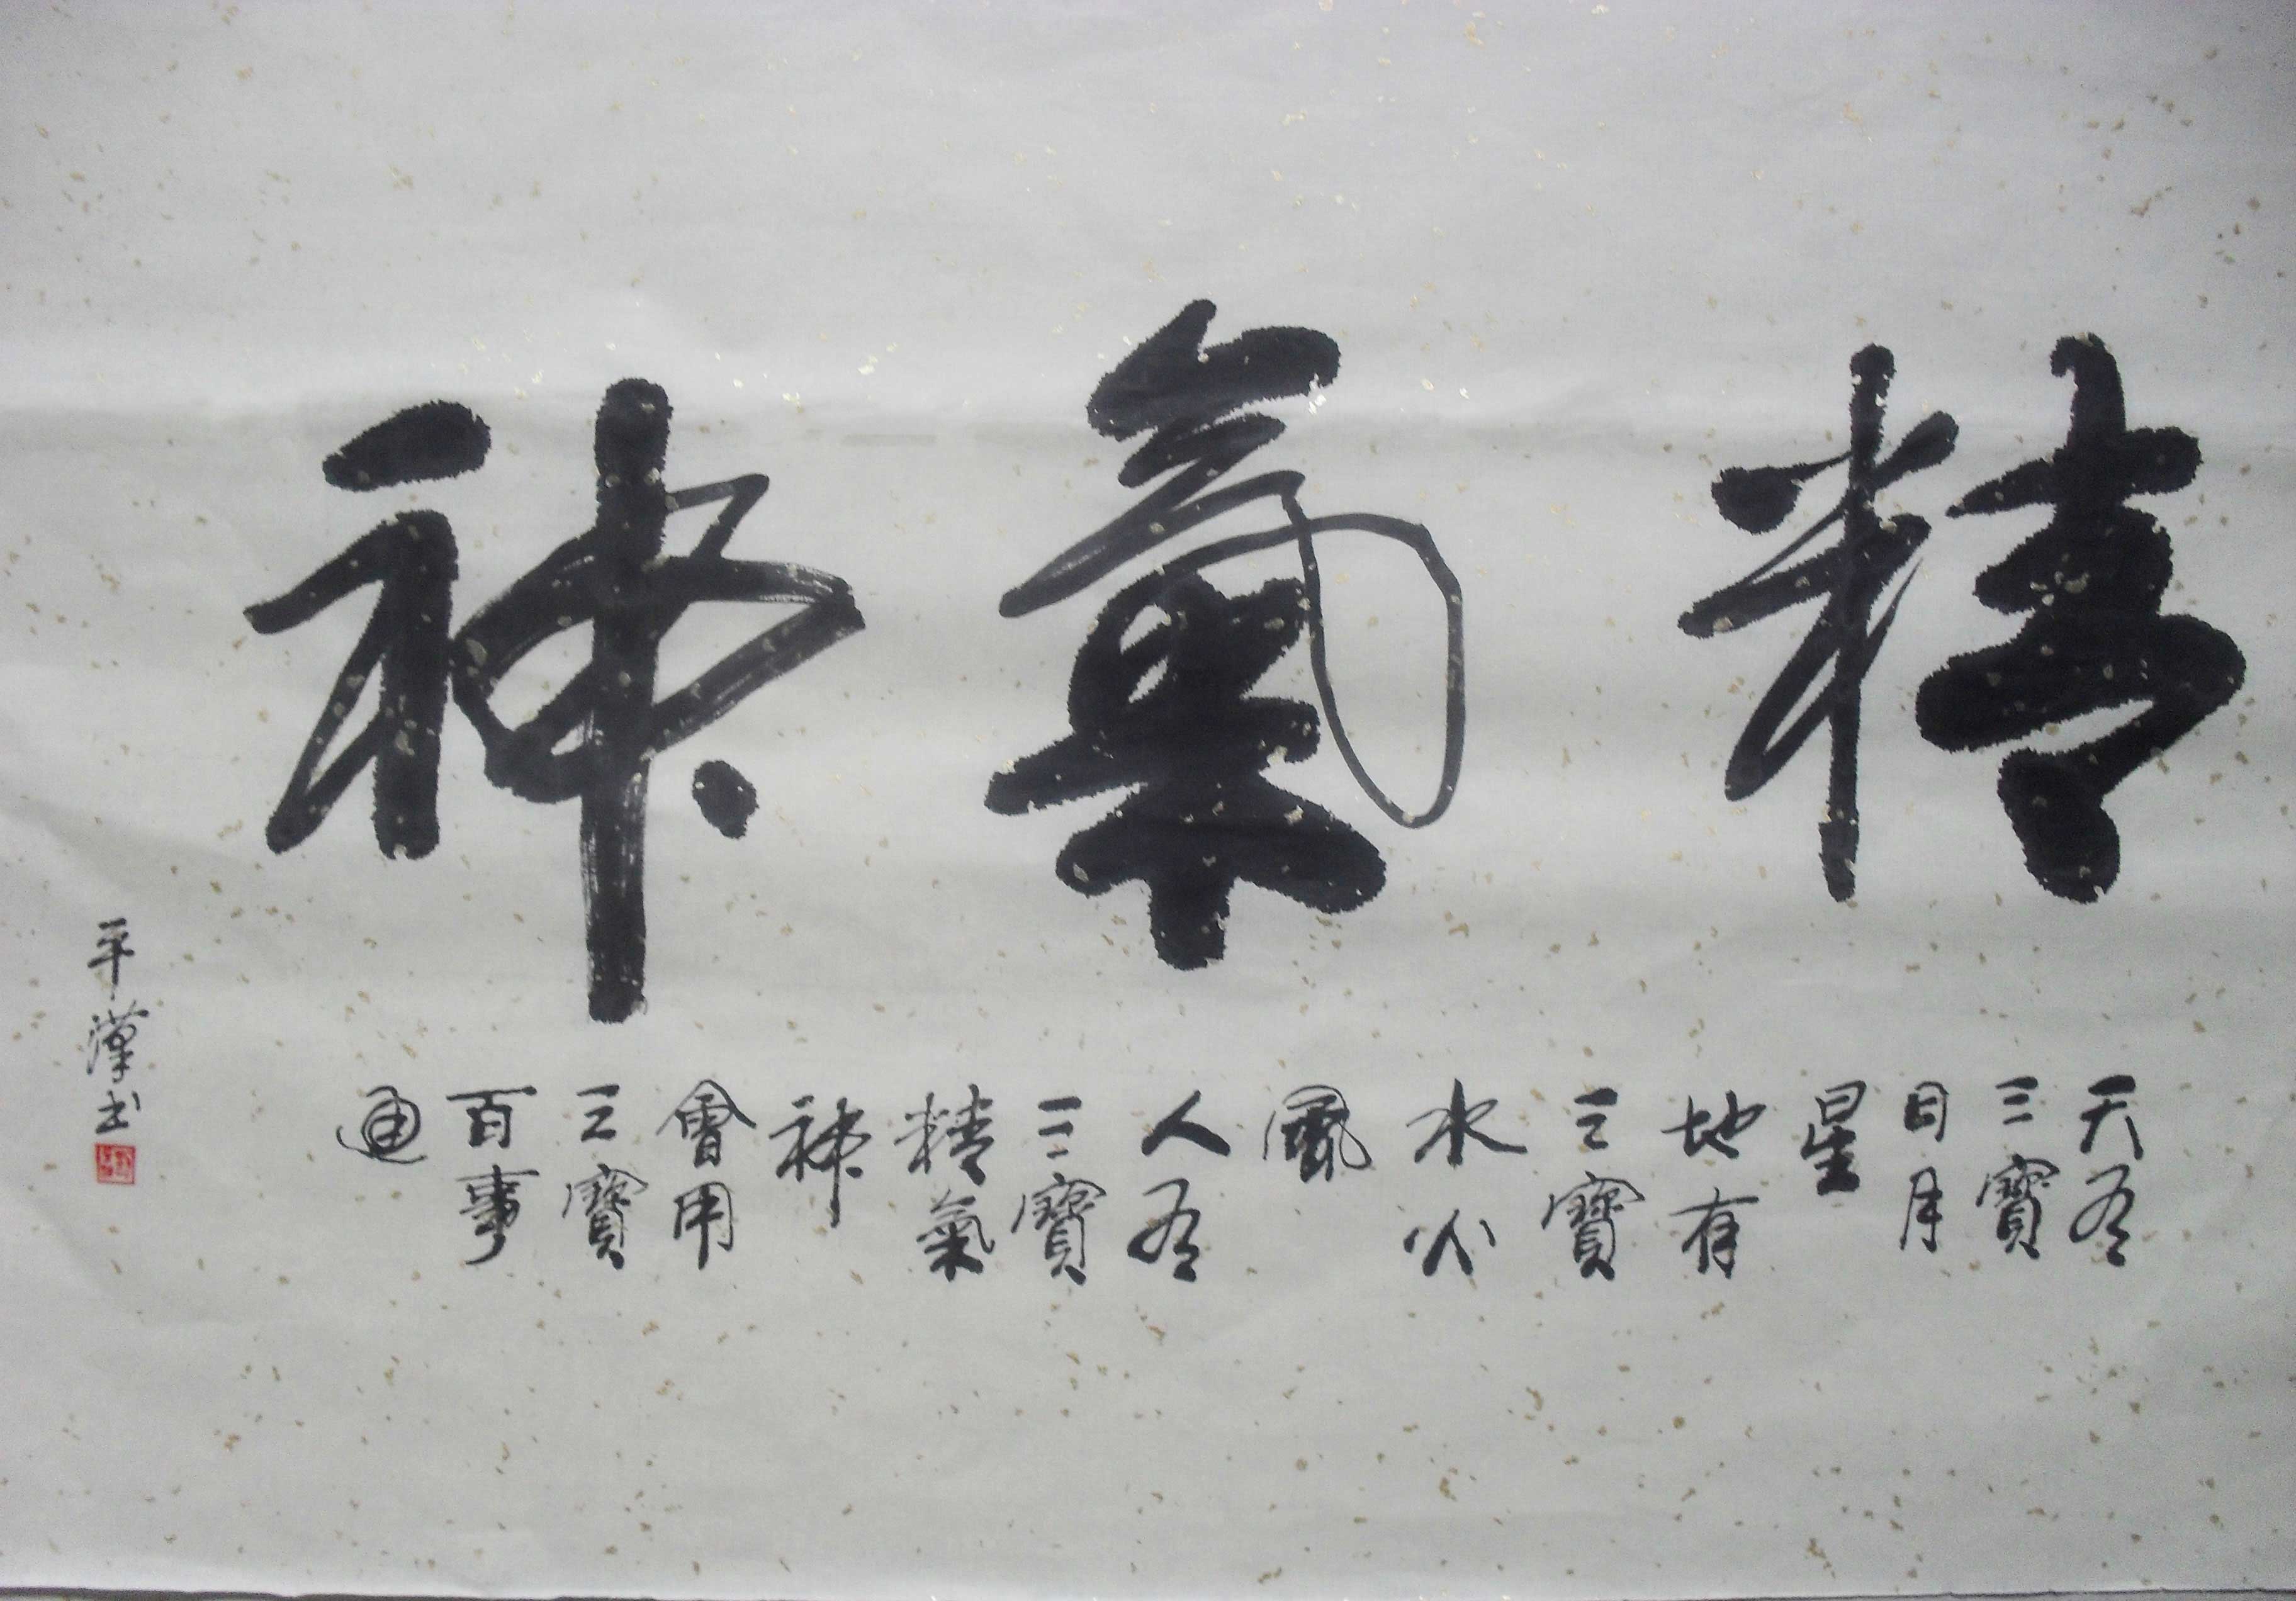 精氣神
天有
三寶
日月
星
地有
三寶
水火
風
人有
三寶
精氣
神
會用
三寶
百事
通
平漢书